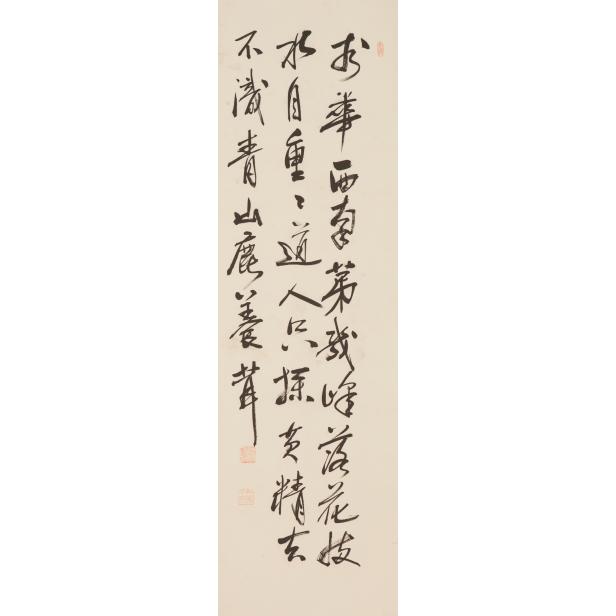 華西南第幾峰落花流
水自重〻道人只採黄精去
不識青山鹿養茸